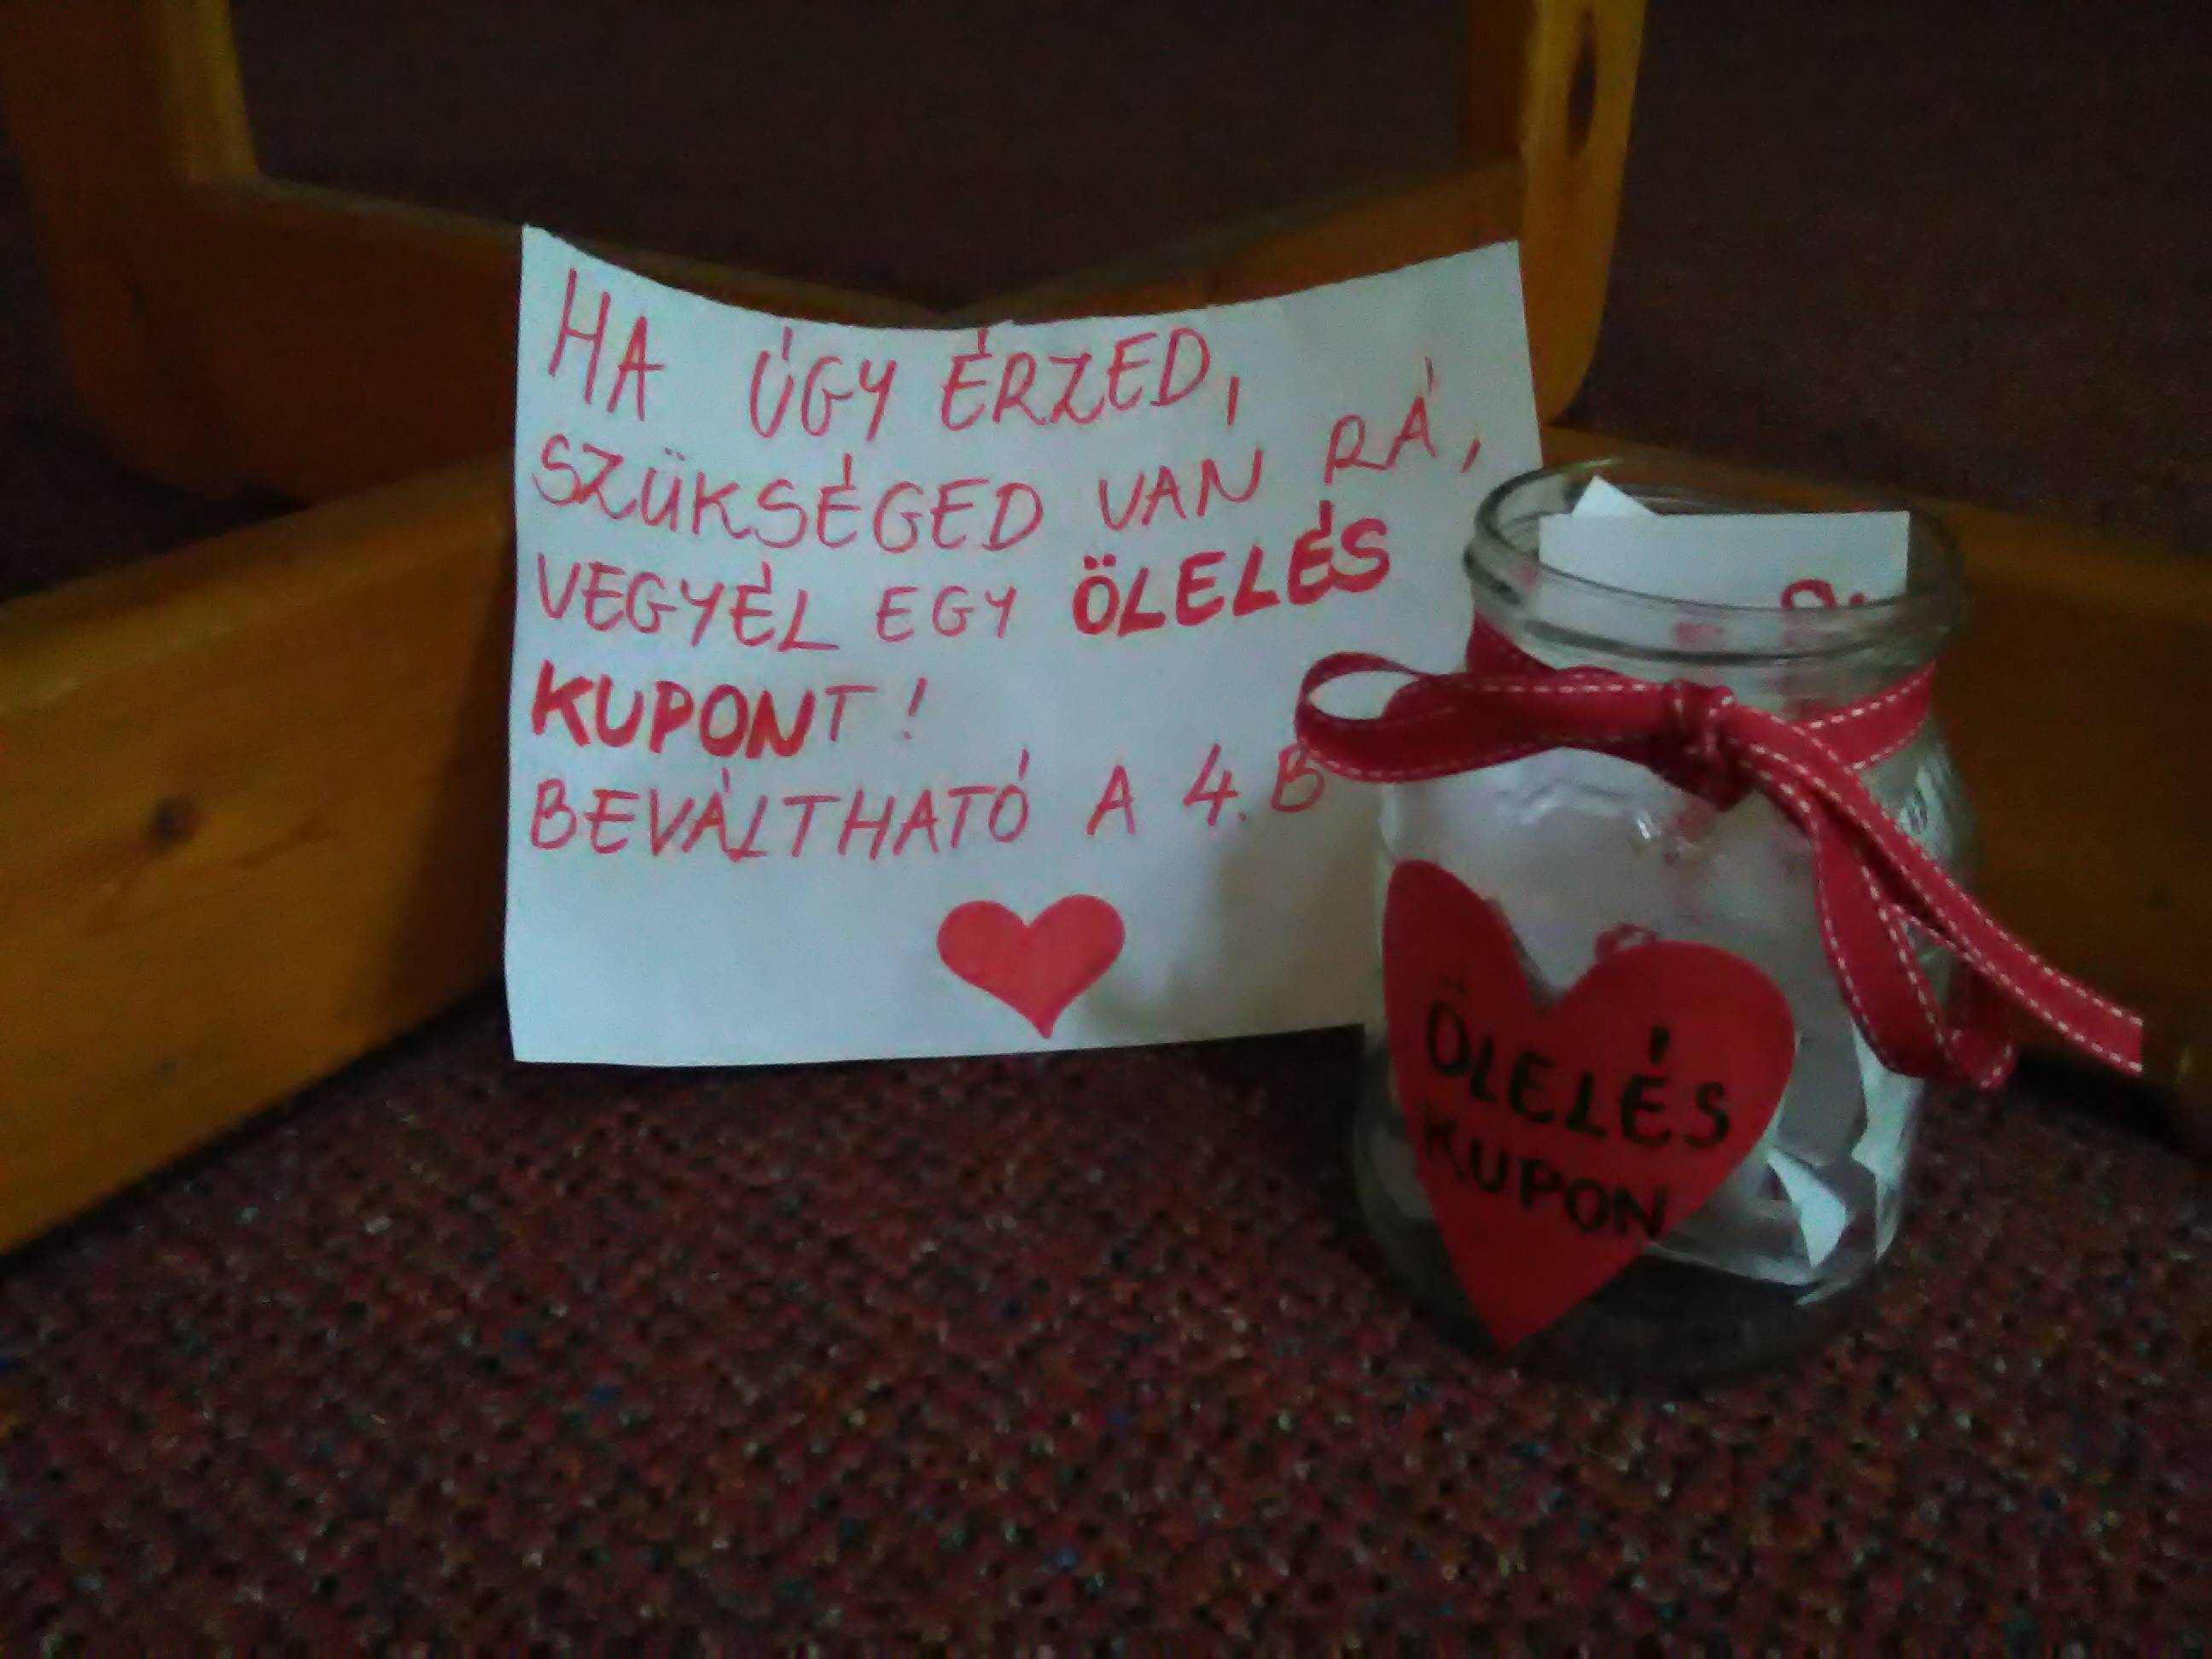 HA ÚGY ÉRZED,
SZÜKSÉGED VAN RÁ,
VEGYÉL EGY ÖLELÉS
KUPONT!
BEVÁLTHATÓ A 4.B
ÖLELÉS
KUPON